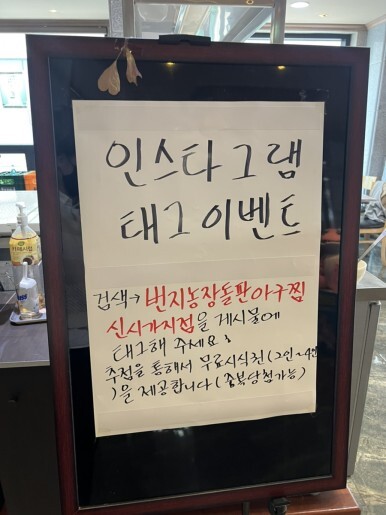 인스타그램
태그이벤트
검색→번지농장돌판아구찜
신시가지점을 게시물에
태그해 주세요
추첨을 통해서 무료시식권(2인~4인
)을 제공합니다(중복당첨가능)